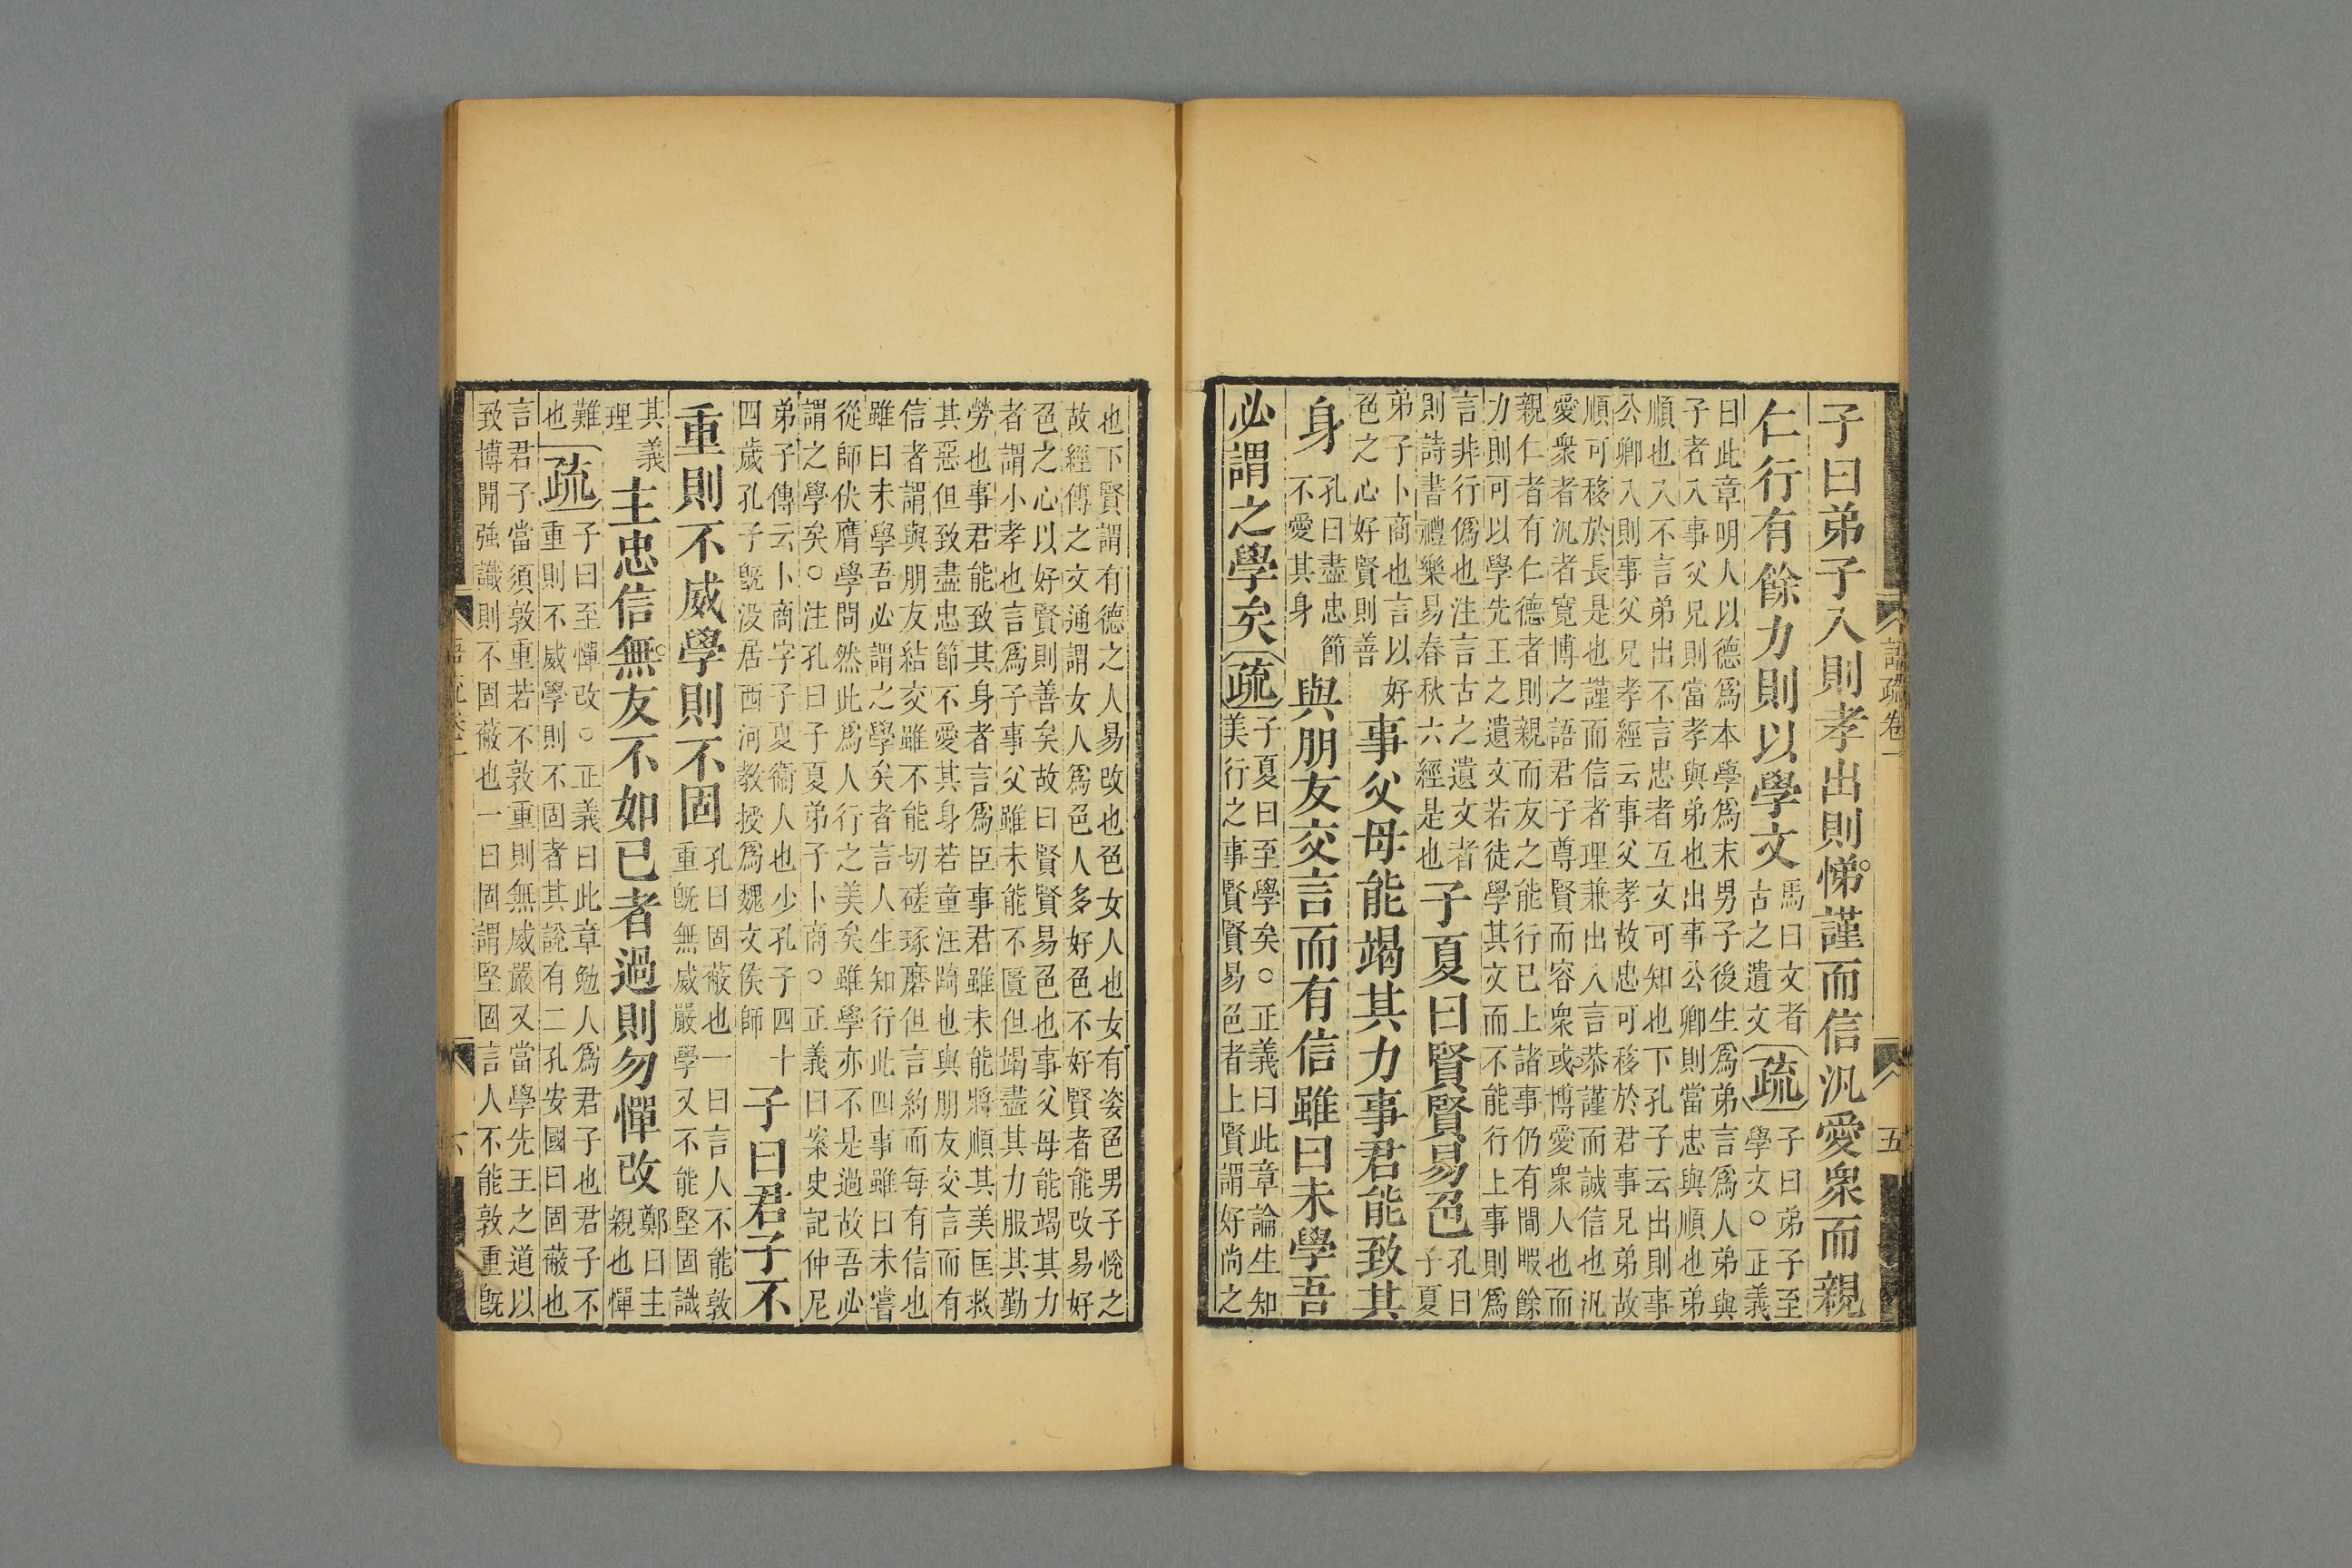 語疏卷一
五
子曰弟子入則孝出則悌謹而信汎愛衆而親
仁行有餘力則以學文
馬曰文者
古之遺文
疏
子曰弟子至
學文○正義
曰此章明人以德爲本學爲末男子後生爲弟言爲人弟與
子者入事父兄則當孝與弟也出事公卿則當忠與順也弟
順也入不言弟出不言忠者互文可知也下孔子云出則事
公卿入則事父兄孝經云事父孝故忠可移於君事兄弟故
順可移於長是也謹而信者理兼出入言恭謹而誠信也汎
愛衆者汎者寬博之語君子尊賢而容衆或博愛衆人也而
親仁者有仁德者則親而友之能行已上諸事仍有間暇餘
力則可以學先王之遺文若徒學其文而不能行上事則爲
言非行僞也注言古之遺文者
則詩書禮樂易春秋六經是也
子夏曰賢賢易色
孔曰
子夏
弟子卜商也言以好
色之心好賢則善
事父母能竭其力事君能致其
身
孔曰盡忠節
不愛其身
與朋友交言而有信雖曰未學吾
必謂之學矣
疏
子夏曰至學矣○正義曰此章論生知
美行之事賢賢易色者上賢謂好尚之
也下賢謂有德之人易改也色女人也女有姿色男子悅之
故經傳之文通謂女人爲色人多好色不好賢者能改易好
色之心以好賢則善矣故曰賢賢易色也事父母能竭其力
者謂小孝也言爲子事父雖未能不匱但竭盡其力服其勤
勞也事君能致其身者言爲臣事君雖未能將順其美匡救
其惡但致盡忠節不愛其身若童汪踦也與朋友交言而有
信者謂與朋友結交雖不能切磋琢磨但言約而每有信也
雖曰未學吾必謂之學矣者言人生知行此四事雖曰未嘗
從師伏膺學問然此爲人行之美矣雖學亦不是過故吾必
謂之學矣○注孔曰子夏弟子卜商○正義曰案史記仲尼
弟子傳云卜商字子夏衞人也少孔子四十
四歲孔子旣没居西河教授爲魏文侯師
子曰君子不
重則不威學則不固
孔曰固蔽也一曰言人不能敦
重旣無威嚴學又不能堅固識
其義
理
主忠信無友不如已者過則勿憚改
鄭曰主
親也憚
難
也
疏
子曰至憚改○正義曰此章勉人爲君子也君子不
重則不威學則不固者其說有二孔安國曰固蔽也
言君子當須敦重若不敦重則無威嚴又當學先王之道以
致博聞强識則不固蔽也一曰固謂堅固言人不能敦重旣